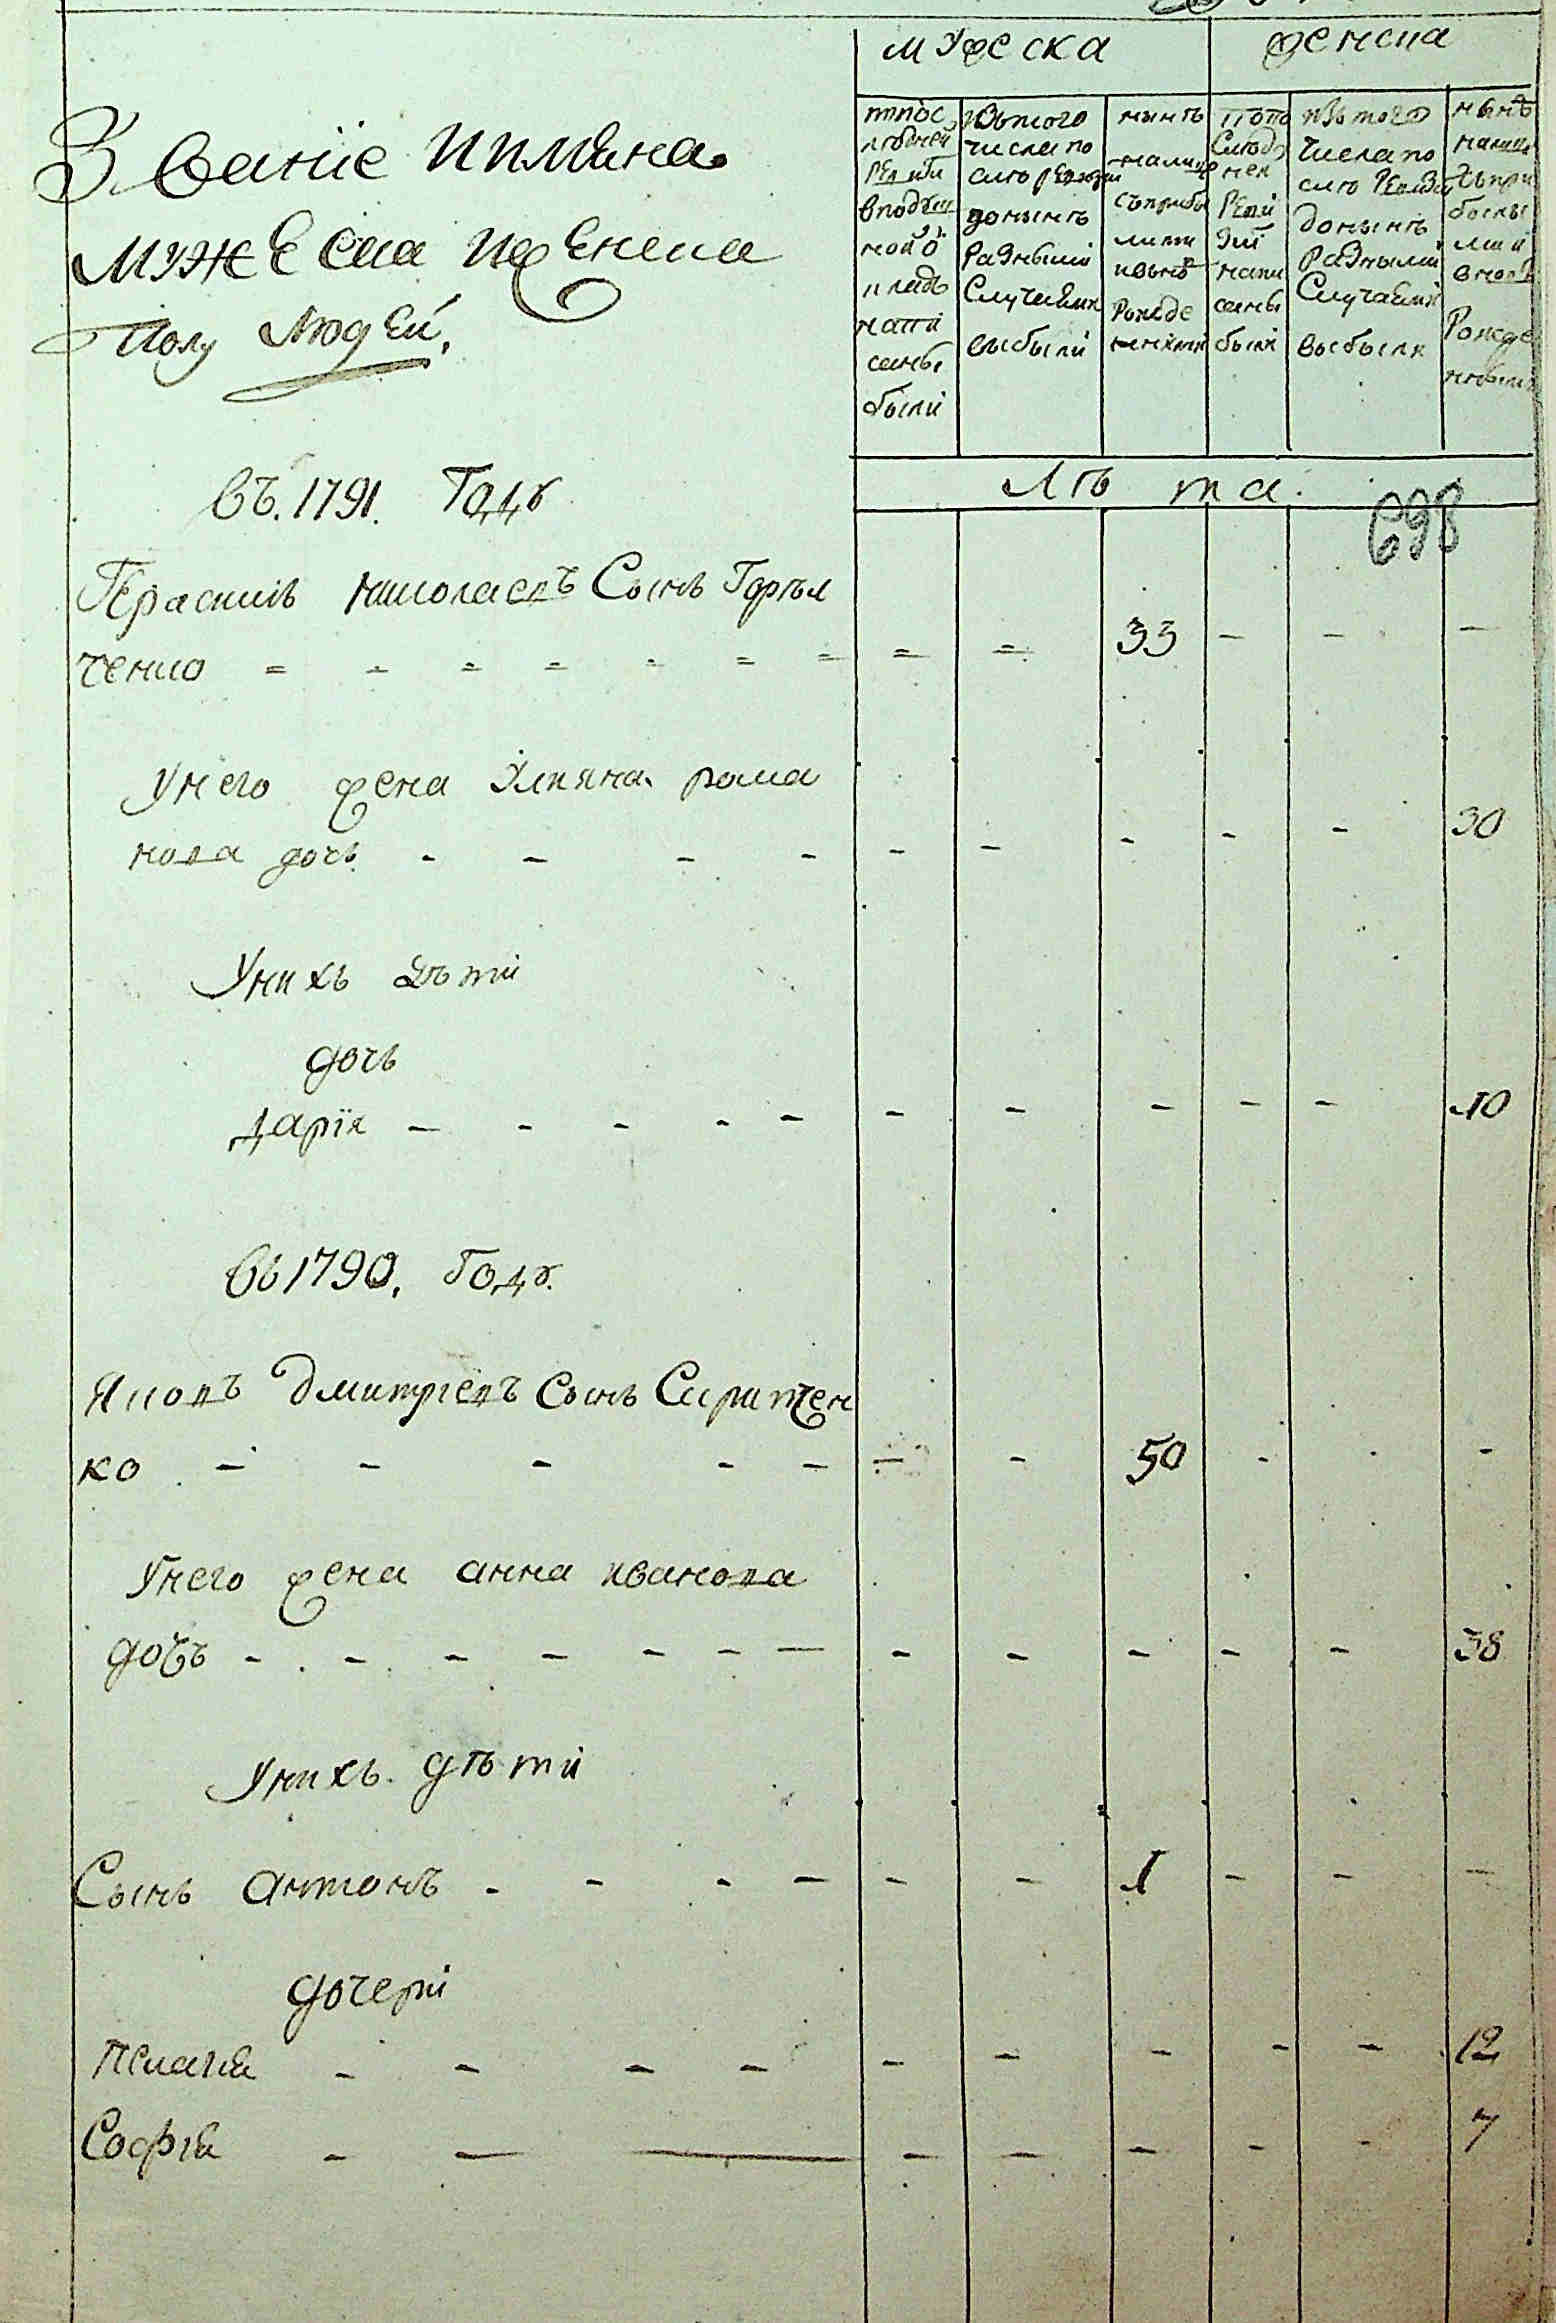 мужеска
женска
Званїе имяна
мужеска и женска
полу людей,
по по
следней
ревизїи
в подуш
ной о
клад
напи
саны
были
изъ того
числа по
слѣ ревизии
до нынѣ
разными
случаями
выбыли
нынѣ
на лице
съ прибы
лыми
и вновь
рожде
нными
по по
след
ней
реви
зии
напи
саны
были
изъ того
числа по
слѣ ревизи
до нынѣ
разными
случаями
выбыли
нынѣ
на лице
съ при
былы
ми и
вновь
рожде
нными
Лѣта.
698
въ. 1791. году
Герасимъ Николаевъ сынъ Горѣл
ченко 33
У него жена Улияна рома
нова дочь 30
У нихъ дѣти
дочь
Дарїя 10
въ 1790. году.
Яковъ Дмитрїевъ сынъ Сиритен
ко 50
У него жена анна иванова
дочъ 38
У нихъ дѣти
Сынъ антонъ 1
дочери
Пелагія 12
Софія 7